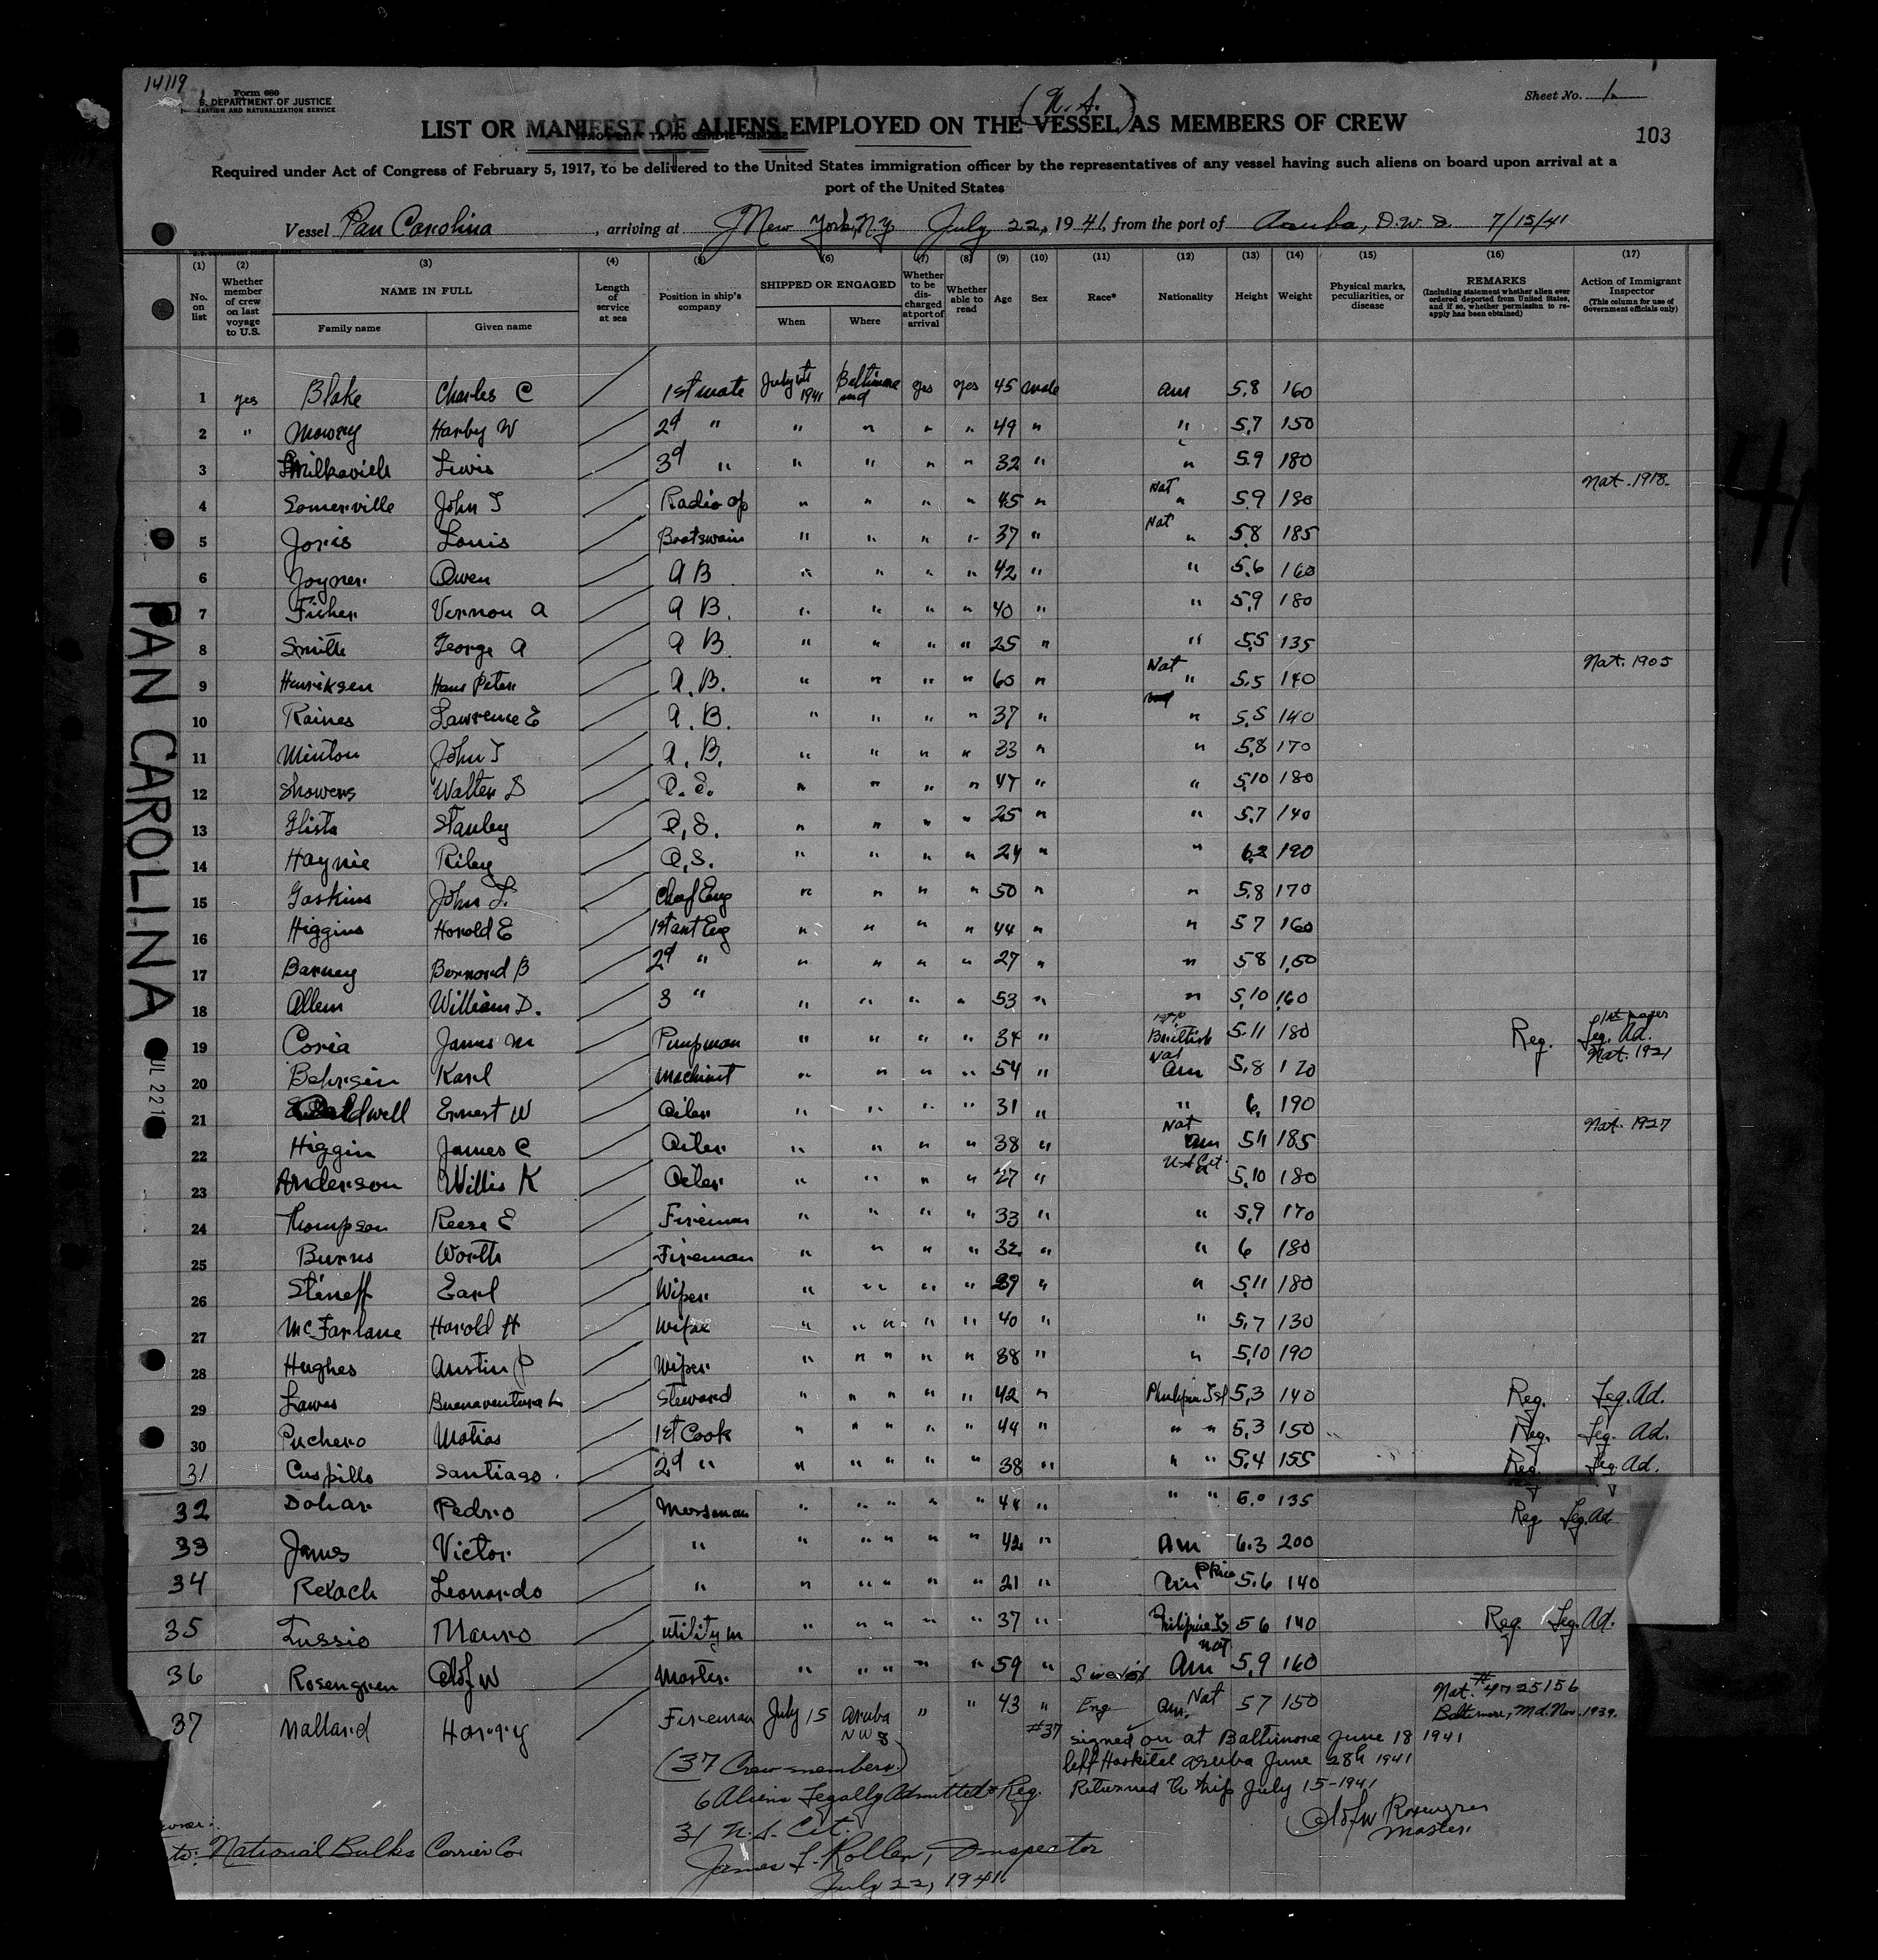 14119
Form 680
S. DEPARTMENT OF JUSTICE
RATION AND NATURALIZATION SERVICE
Sheet No. 1
103
LIST OR MANIFEST OF ALIENS EMPLOYED ON THE VESSEL AS MEMBERS OF CREW
Required under Act of Congress of February 5, 1917, to be delivered to the United States immigration officer by the representatives of any vessel having such aliens on board upon arrival at a
port of the United States
Vessel Pan Carolina, arriving at New York, N.Y. July 22, 1941, from the port of Aruba, D.W.I. 7/15/41
(1) No. on list
(2) Whether member of crew on last voyage to U.S.
(3) NAME IN FULL Family name Given name
(4) Length of service at sea
(5) Position in ship's company
(6) SHIPPED OR ENGAGED When Where
(7) Whether to be discharged at port of arrival
(8) Whether able to read
(9) Age
(10) Sex
(11) Race*
(12) Nationality
(13) Height
(14) Weight
(15) Physical marks, peculiarities, or disease
(16) REMARKS (Including statement whether alien ever ordered deported from United States, and if so, whether permission to reapply has been obtained)
(17) Action of Immigrant Inspector (This column for use of Government officials only)
1 yes Blake Charles C 1st mate 1941 Baltimore md yes yes 45 male am 5.8 160
2 " Mowry W 2d " " " " " 49 " " 5.7 150
3 3d " " " " " 32 " " 5.9 180
4 Somerville John T Radio op " " " " 45 " Nat " 5.9 180 Nat. 1918
5 Joris Louis Boatswain " " " " 37 " Nat " 5.8 185
6 Joyner Owen A B " " " " 42 " " 5.6 160
7 Fisher Vernon A A B. " " " " 40 " " 5.9 180
8 Smith George A A B " " " " 25 " " 5.5 135
9 Henriksen Hans Peter A. B. " " " " 60 " Nat " 5.5 140 Nat. 1905
10 Raines Lawrence E A. B. " " " " 37 " " 5.5 140
11 Minton John T A. B. " " " " 33 " " 5.8 170
12 Showers Walter D O. S. " " " " 47 " " 5.10 180
13 Glista Stanley O. S. " " " " 25 " " 5.7 140
14 Haynie Riley O. S. " " " " 24 " " 6.2 190
15 Gaskins John L. Chief Eng " " " " 50 " " 5.8 170
16 Higgins Harold E 1st ast Eng " " " " 44 " " 5 7 160
17 Barney Bernard B 2d " " " " " 27 " " 5 8 1,50
18 Allen William D. 3 " " " " " 53 " " 5.10 160
19 Coria James M Pumpman " " " " 34 " British 5.11 180 Reg. 1st paper Leg. Ad.
20 Behrsin Karl Machinist " " " " 54 " Nat am 5.8 170 Nat. 1921
21 Ernest W Oiler " " " " 31 " " 6. 190
22 Higgin James C Oiler " " " " 38 " Nat am 5 11 185 Nat. 1927
23 Anderson Willis K Oiler " " " " 27 " U.S. Cit. 5.10 180
24 Thompson Reese E Fireman " " " " 33 " " 5.9 170
25 Burns Worth Fireman " " " " 32 " " 6 180
26 Stineff Earl Wiper " " " " 29 " " 5.11 180
27 McFarlane Harold H Wiper " " " " 40 " " 5.7 130
28 Hughes Austin P Wiper " " " " 38 " " 5.10 190
29 Lawas Buenaventura L Steward " " " " 42 " Philipine Isl 5.3 140 Reg. Leg. Ad.
30 Puchero Matias 1st Cook " " " " 44 " " " 5.3 150 Reg. Leg. Ad.
31 Cuspillo Santiago 2d " " " " " 38 " " " 5.4 155 Reg. Leg. Ad.
32 Dohar Pedro Messman " " " " 44 " " " 5.0 135 Reg Leg. Ad
33 James Victor " " " " " 42 " Am 6.3 200
34 Rexach Leonardo " " " " " 21 " Am P Rico 5.6 140
35 Tussio Mauro utility m " " " " 37 " Philipine Is 5 6 140 Reg. Leg. Ad.
36 Rosengren Olof W Master " " " " 59 " Swedish nat Am 5.9 160
37 Mallard Harry Fireman July 15 Aruba NWI " " 43 " Eng am. Nat 5 7 150 Nat. # 4725156 Baltimore, Md. Nov. 1939.
#37 signed on at Baltimore June 18 1941
left Hospital Aruba June 28th 1941
Returned to ship July 15-1941
Olof W Rosengren
Master
(37 Crew members)
6 Aliens Legally Admitted & Reg.
31 U.S. Cit.
James L. Rollen, Inspector
July 22, 1941.
National Bulks Carrier Co.
PAN CAROLINA
JUL 22 1